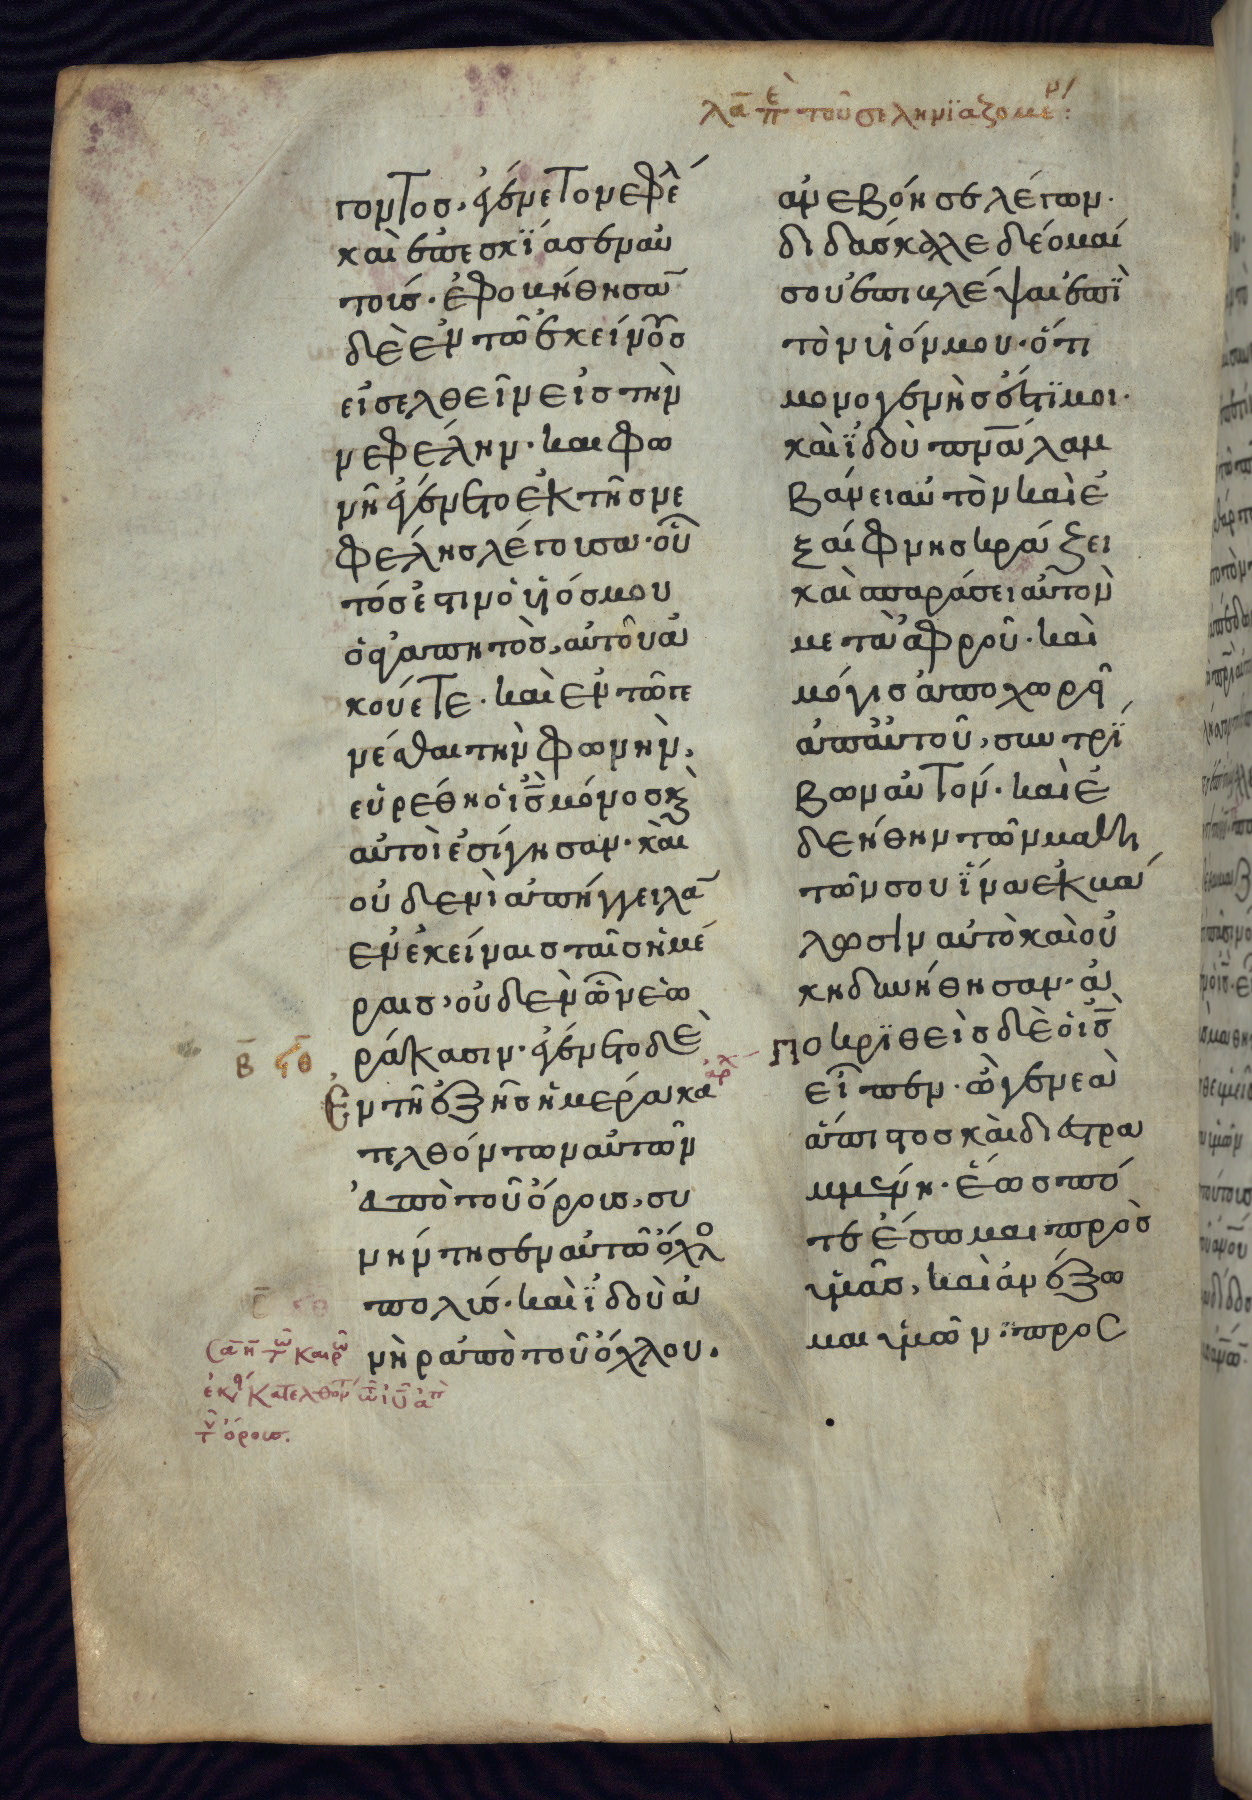 λα πε τοῦ σεληνϊαζομεν:
γοντος, ἐγένετο νεφέλ
καὶ ἐπεσκΐασεν αὐ
τοῖς· ἐφοβήθησαν
δὲ ἐν τῶ ἐκείνους
εἰσελθεῖν εἰς τὴν
νεφέλην· και φω
νὴ ἐγένετο ἐκ τῆς νε
φέλης λέγουσα· οὗ
τός ἐστιν ὁ υἱός μου
ὁ ἀγαπητὸς, αὐτοῦ ἀ
κούετε· καὶ ἐν τῶ γε
νέσθαι τὴν φωνὴν,
εὑρέθη ὁ ις μόνος κ
αὐτοὶ ἐσίγησαν· καὶ
οὐδενὶ ἀπήγγειλαν
ἐν ἐκείναις ταῖς ἡμέ
ραις, οὐδὲν ὧν ἑω
ράκασιν· ἐγένετο δὲ
Ἐν τῆ ἑξῆς ἡμέρα κα
τελθόντων αὐτῶν
ἀπὸ τοῦ ὄρους, συ
νήντησεν αὐτῶ ὄχλο
πολύς· καὶ ϊδοὺ ἀ
νὴρ ἀπὸ τοῦ ὄχλου·
ἀνεβόησε λέγων·
διδάσκαλε δέομαί
σου ἐπιβλέψαι ἐπὶ
τὸν υἱόν μου· ὅτι
μονογενὴς ἐστΐ μοι·
καὶ ϊδοὺ πνα λαμ
βάνει αὐτὸν καὶ ἐ
ξαίφνης κράζει
καὶ σπαράσει αὐτὸν
μετὰ ἀφροῦ· καὶ
μόγις ἀποχωρεῖ
ἀπ' αὐτοῦ, συντρΐ
βων αὐτόν· καὶ ἐ
δεήθην τῶν μαθη
τῶν σου ϊνα ἐκβά
λωσιν αὐτὸ καὶ οὐ
κ ηδυνήθησαν· ἀ
ποκρϊθεὶς δὲ ὁ ις
εἶπεν· ὦ γενεὰ
ἄπιστος καὶ διεστρα
μμένη· ἕως πό
τε ἔσομαι πρὸς
ὑμᾶς, καὶ ἀνέξο
μαι ὑμῶν; προς
β ϟθ
ἀρχ
τῶ καιρῶ
ἐκ κατελθόντ τω ιυ ἀπ
τ ὄρους.